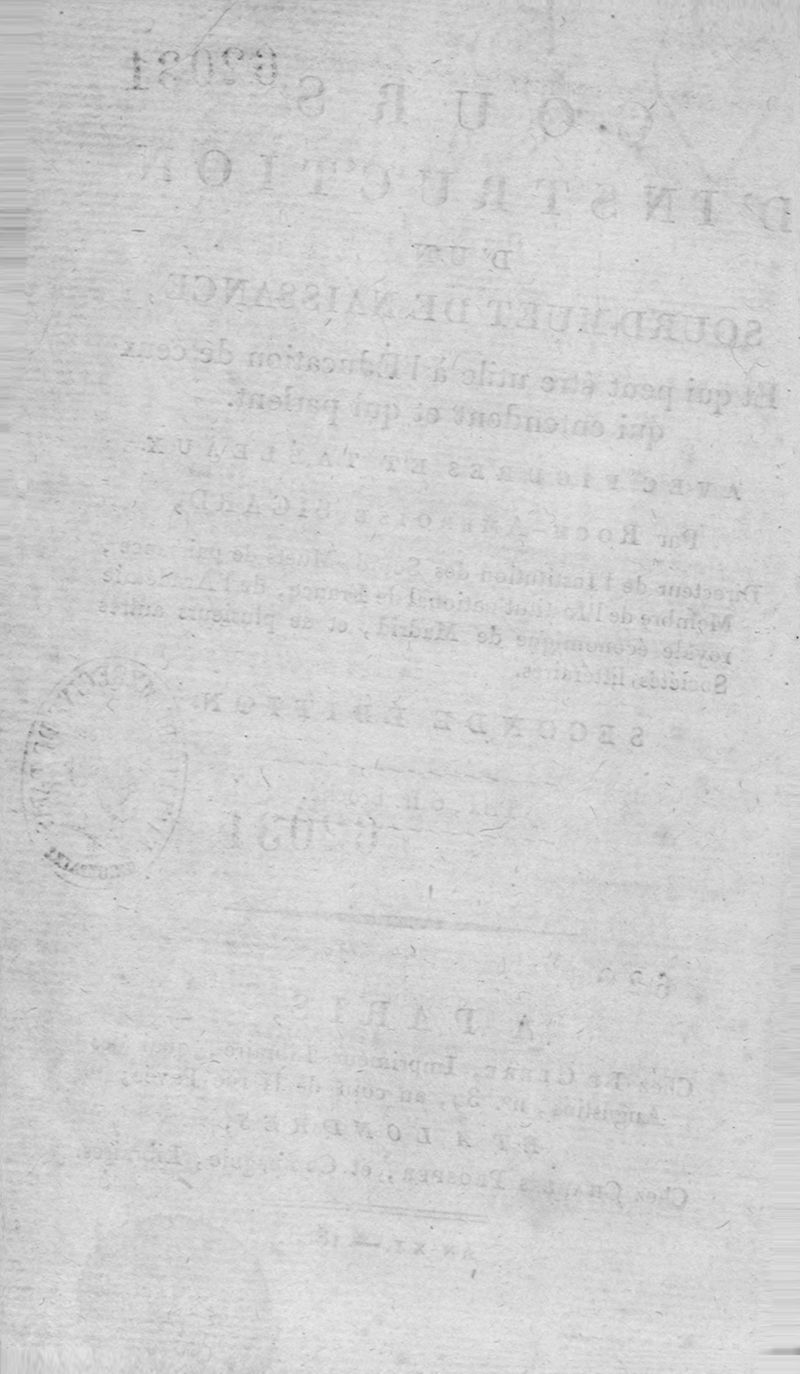 62031
COURS
D'INSTRUCTION
D'UN
SOURD-MUET DE NAISSANCE,
Et qui peut être utile à l'Éducation de ceux
qui entendent et qui parlent.
AVEC FIGURES ET TABLEAUX
Par ROCH-AMBROISE SICARD,
Directeur de l'Institution des Sourds-Muets de naissance,
Membre de l'Institut national de France, de l'Académie
royale économique de Madrid, et de plusieurs autres
Sociétés littéraires.
SECONDE ÉDITION.
62031
A PARIS,
Chez LE CLERE, Imprimeur-Libraire, quai des
Augustins, nº. 39, au coin de la rue Pavée;
ET A LONDRES,
Chez CHARLES PROSPER, et Compagnie, Libraires.
AN XI. — 18